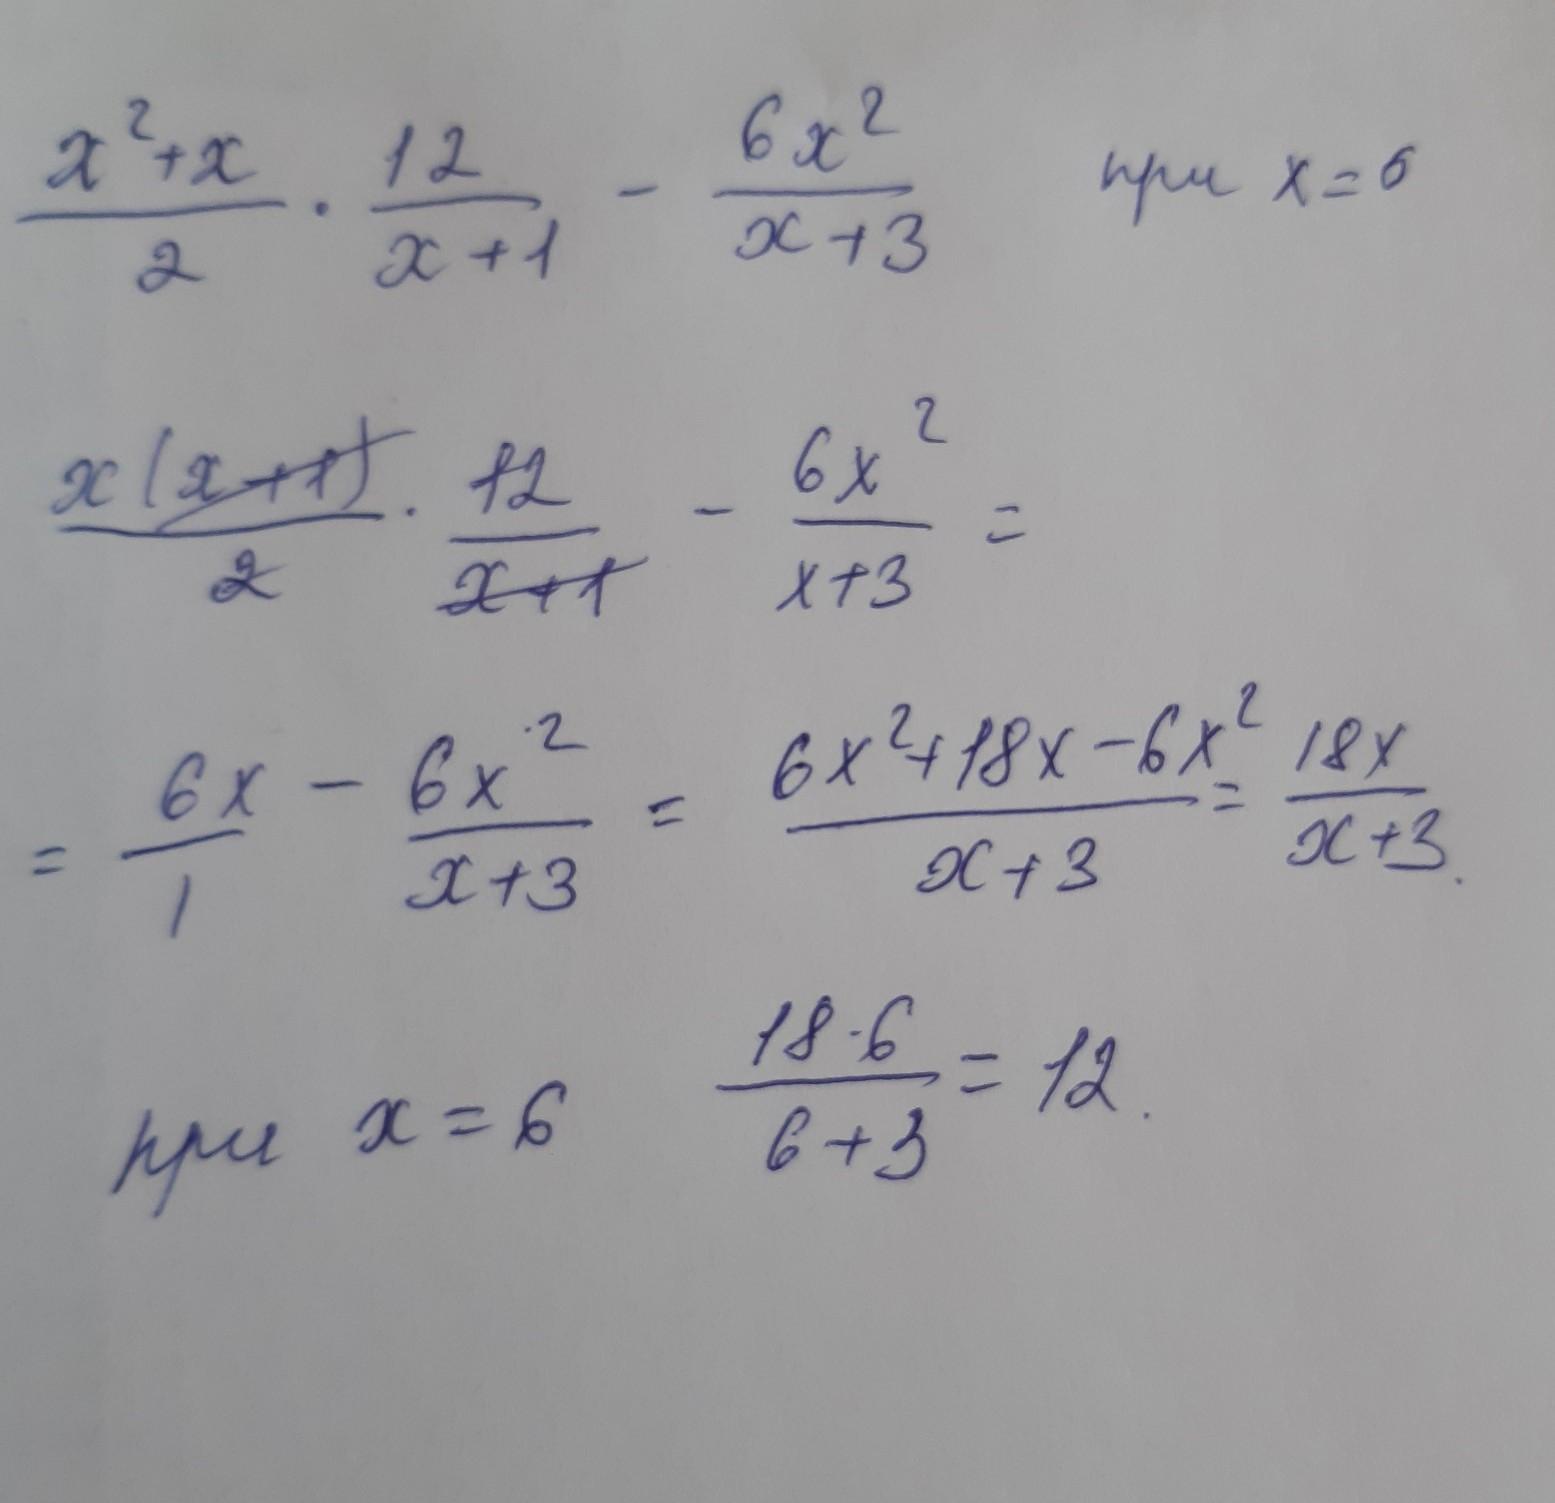 x²+x/2 · 12/x+1 - 6x²/x+3 при x=6
x(x+1)/2 · 12/x+1 - 6x²/x+3 =
= 6x/1 - 6x²/x+3 = 6x²+18x-6x²/x+3 = 18x/x+3.
при x=6 18·6/6+3 = 12.